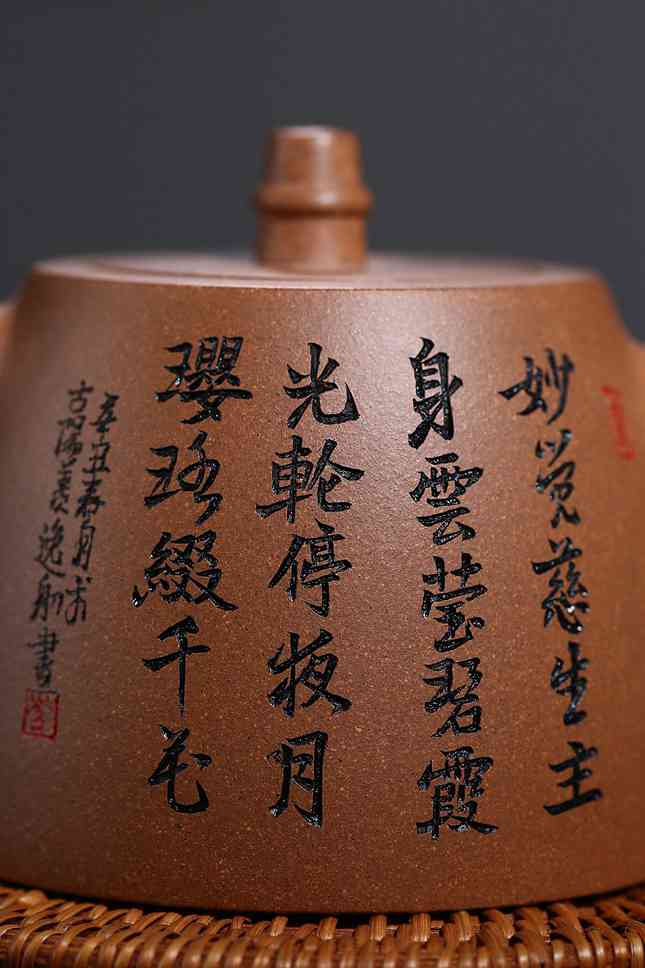 妙覚慈生主
身雲莹碧霞
光轮停夜月
璎珞綴千花
辛丑春月于
古陽羡逸舟書